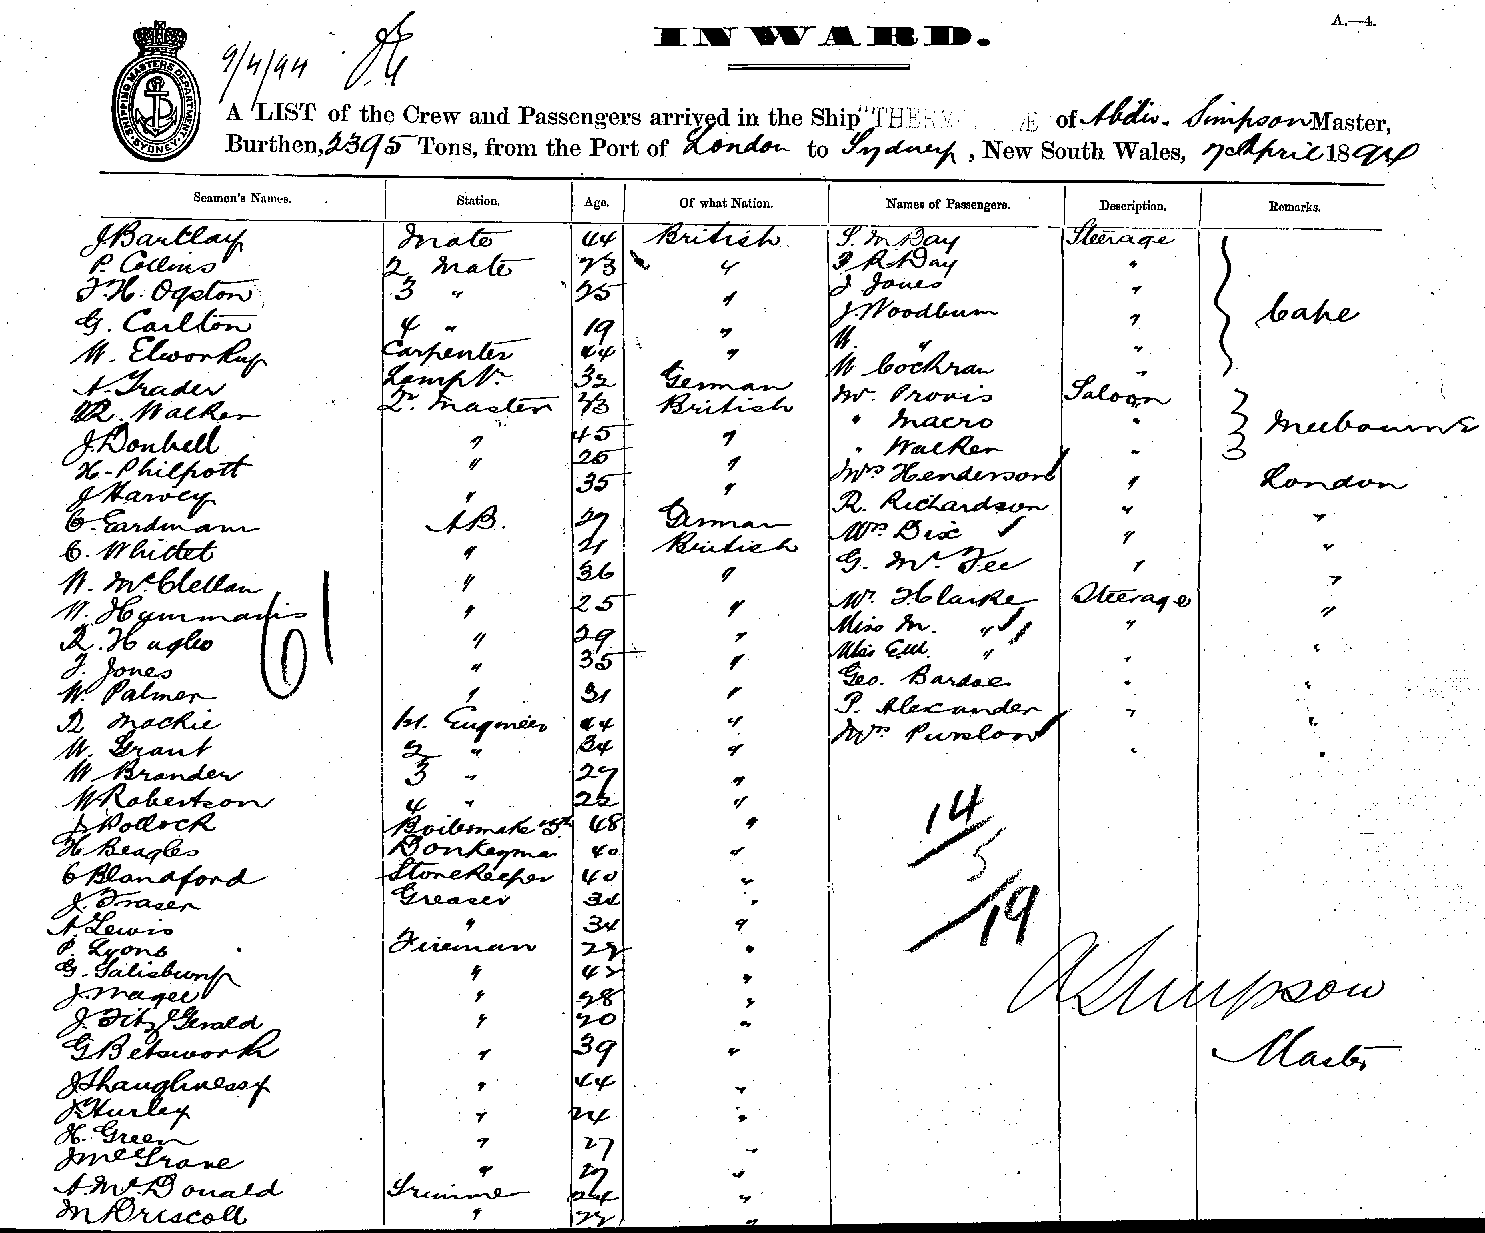 A.—4.
INWARD.
9/4/94
SHIPPING MASTERS DEPARTMENT SYDNEY
A LIST of the Crew and Passengers arrived in the Ship "THERM Æ of Abdw. Simpson Master,
Burthen, 2395 Tons, from the Port of London to Sydney, New South Wales, 7 April 1894
Seamen's Names. Station. Age. Of what Nation. Names of Passengers. Description. Remarks.
J Barclay Mate 44 British S. M Day Steerage
P. Collins 2 Mate 23 " R Day "
J. H. Ogston 3 " 25 " J Jones "
G. Carlton 4 " 19 " J. Woodburn " Cape
W. Elworthy Carpenter 44 " M. " "
A. Trader Lamp Tr. 32 German W Cochran "
W. Walker Qr. Master 43 British Mr. Provis Saloon
J. Bonbell " 45 " " Macro " Melbourne
H. Philpott " 25 " " Walker "
J Harvey " 35 " Mrs Henderson " London
C. Eardmann A.B. 27 German R. Richardson " "
C. Whittet " 21 British Mrs Dix " "
W. McClellan " 36 " G. McFee " "
W. Hummanis " 25 " Mr. H Clarke Steerage "
R. Hughes " 29 " Miss M. " " "
J. Jones " 35 " Miss E.M. " " "
W. Palmer " 31 " Geo. Bardoe " "
R Mackie 1st. Engineer 44 " P. Alexander " "
W. Grant 2 " 34 " Mrs Purslow " "
W Brander 3 " 27 "
W Robertson 4 " 22 "
J Pollock Boilermaker 5th 48 "
H Beagles Donkeyman 40 "
C Blandford Storekeeper 40 "
J. Fraser Greaser 34 "
A. Lewis " 34 "
P. Lyons Fireman 22 "
G. Salisbury " 42 "
J. Magee " 28 "
J. Fitz Gerald " 20 "
G Betsworth " 39 "
J Shaughnessy " 44 "
J Hurley " 24 "
H. Green " 27 "
J McGrane " 27 "
A. McDonald Trimmer 24 "
M Driscoll " 22 "
61
14
5
19
A Simpson
Master